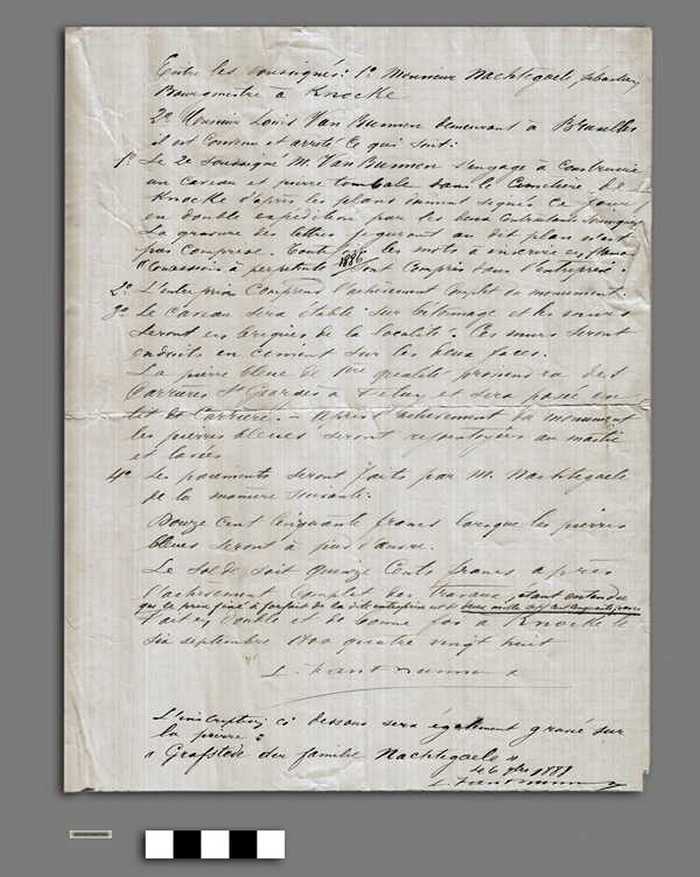 Entre les soussignés: 1º Monsieur Nachtegaele, Sébastien
Bourgmestre à Knocke
2º Monsieur Louis Van Bunnen demeurant à Bruxelles
il est convenu et arrêté ce qui suit:
1º Le 2e soussigné M. Van Bunnen s'engage à construire
un caveau et pierre tombale dans le cimetière de
Knocke d'après les plans dûment signés ce jour
en double expédition par les deux contractants
La gravure des lettres figurant au dit plan n'est
pas comprise. les mots à inscrire
"Concession à perpétuité 1886" sont compris dans l'entreprise.
2º L'entreprise comprend l'achèvement complet du monument.
3º Le caveau sera établi sur bétonnage et les murs
seront en briques de la localité. Ces murs seront
enduits en ciment sur les deux faces.
La pierre bleue de 1ère qualité proviendra des
Carrières St Georges à Feluy et sera posée en
lit de carrière. Après l'achèvement du monument
les pierres bleues seront rejointoyées au mastic
et lavées
4º Les paiements seront faits par M. Nachtegaele
de la manière suivante:
Douze cent cinquante francs lorsque les pierres
bleues seront à pied d'œuvre.
Le solde soit quinze cents francs après
l'achèvement complet des travaux, étant entendu
que le prix fixé à forfait de la dite entreprise est de deux mille sept cent cinquante francs
Fait en double et de bonne foi à Knocke le
six septembre 1800 quatre vingt huit
L. Van Bunnen
L'inscription ci dessous sera également gravé sur
la pierre:
"Grafstede der familie Nachtegaele"
le 6 7bre 1888
L. Van Bunnen